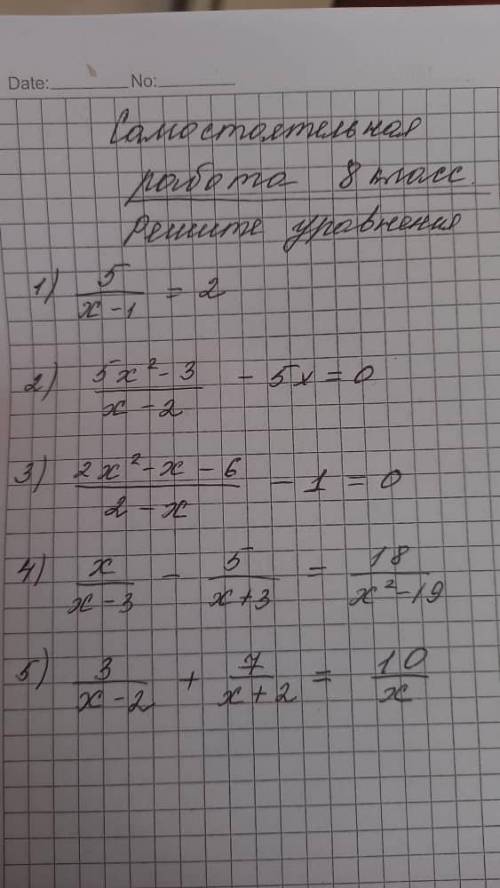 Date: No:
Самостоятельная
работа 8 класс.
Решите уравнения
1) 5/(x-1) = 2
2) (5x²-3)/(x-2) - 5x = 0
3) (2x²-x-6)/(2-x) - 1 = 0
4) x/(x-3) - 5/(x+3) = 18/(x²-19)
5) 3/(x-2) + 7/(x+2) = 10/x